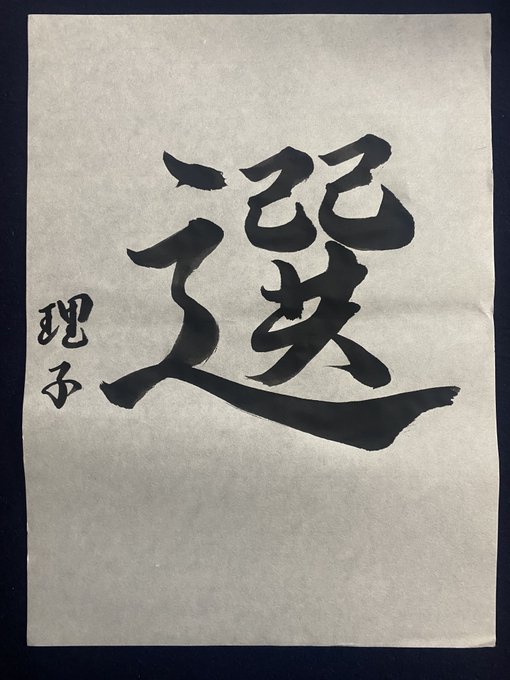 選
理子